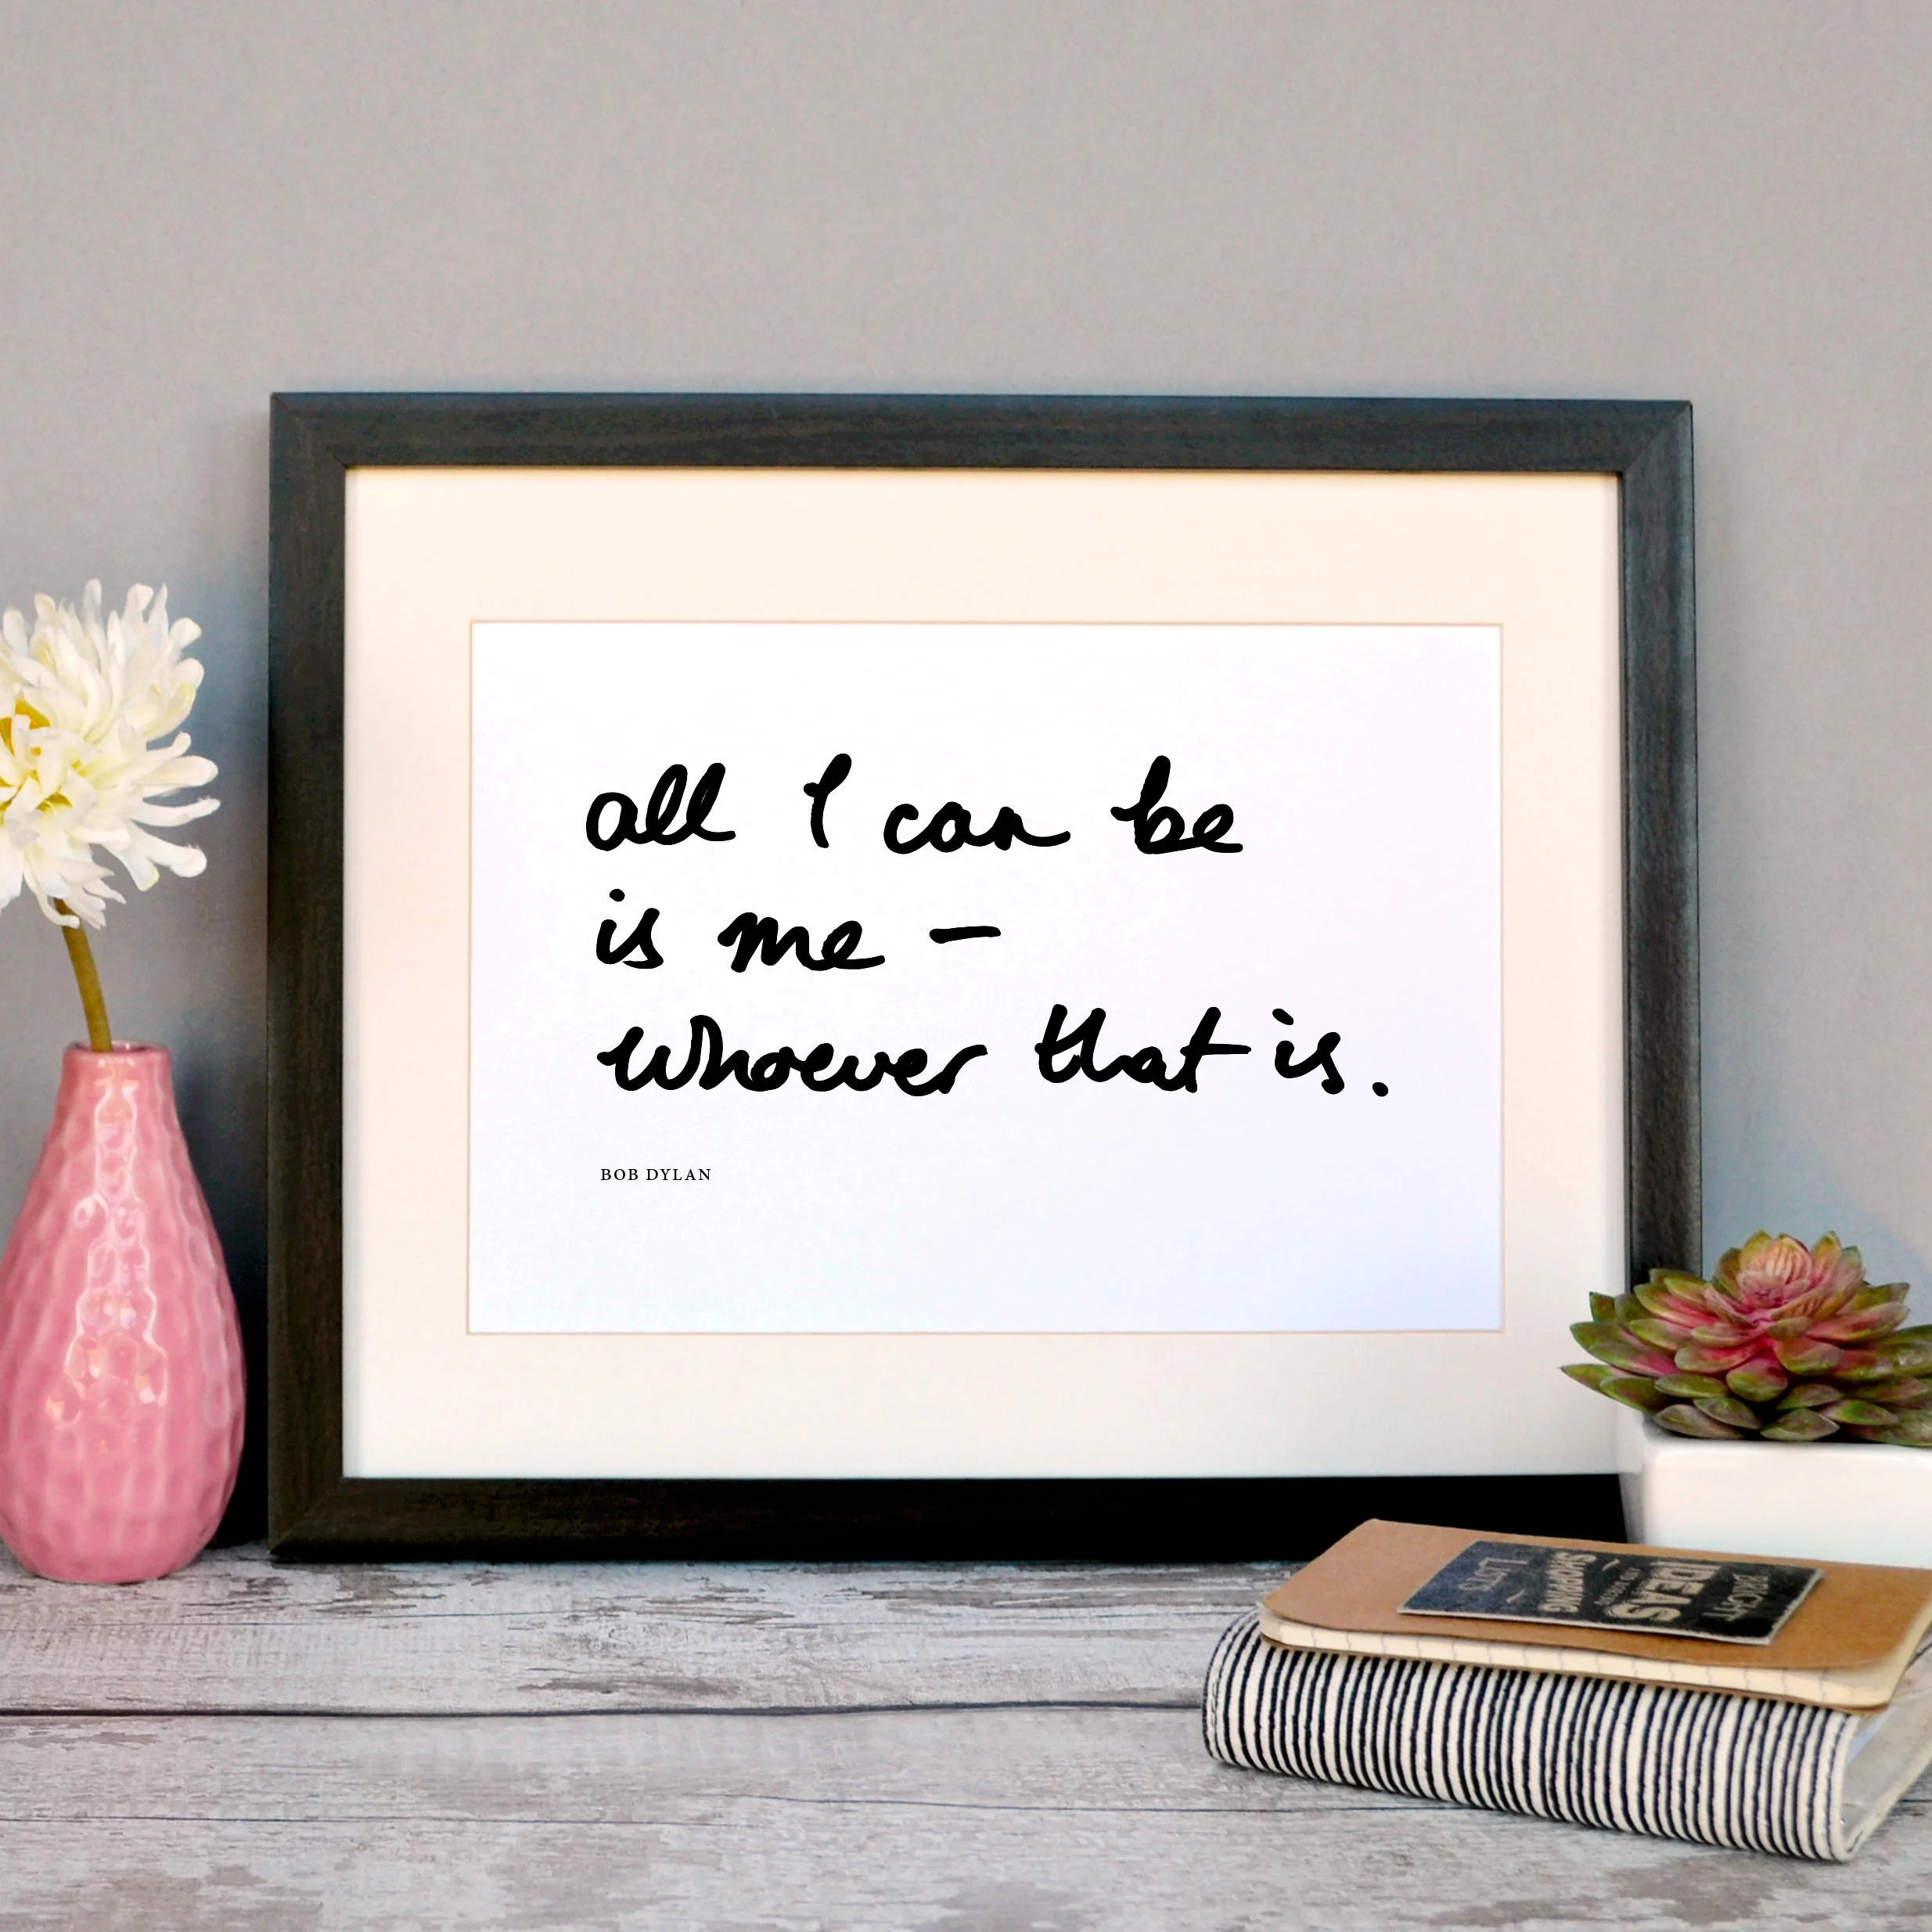 all I can be
is me –
whoever that is.
BOB DYLAN
LISTS
SHOPPING
IDEAS
BRIGHT